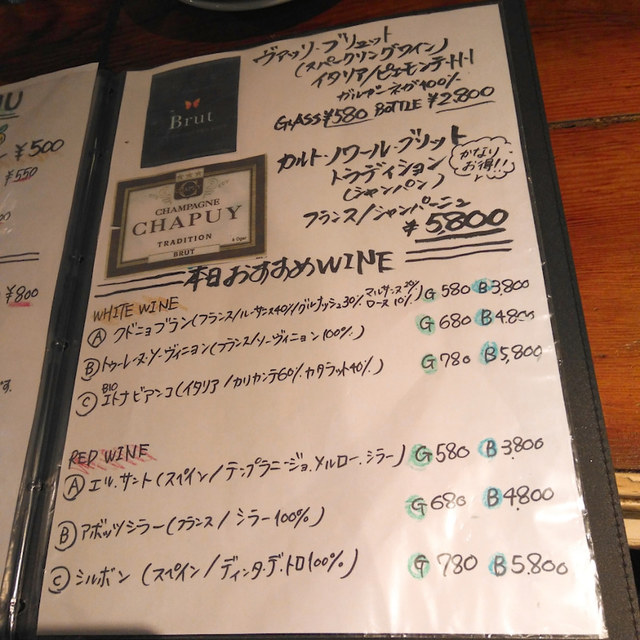 U
¥500
¥550
¥800
す。
Brut
ヴァッリ・ブリュット
(スパークリングワイン)
イタリア/ピェモンテ州
ガルガーネガ100%
GLASS ¥580 BOTTLE ¥2,800
CHAMPAGNE
CHAPUY
TRADITION
BRUT
カルトノワール・ブリット
トラディション
(シャンパン)
かなり
お得!!
フランス/シャンパーニュ
¥5800
本日おすすめWINE
WHITE WINE
Ⓐ クドニョブラン(フランス/ルーサンヌ40%/グルナッシュ30% マルサンヌ20% ロース10%) G 580 B 3,800
Ⓑ トゥーレーヌ・ソーヴィニヨン(フランス/ソーヴィニヨン100%) G 680 B 4,800
BIO
Ⓒ エトナビアンコ(イタリア/カリカンテ60% カタラット40%) G 780 B 5,800
RED WINE
Ⓐ エル・サント(スペイン/テンプラニージョ.メルロー.シラー) G 580 B 3,800
Ⓑ アボッツシラー(フランス/シラー100%) G 680 B 4,800
Ⓒ シルボン(スペイン/ディンタ・デ・トロ100%) G 780 B 5,800